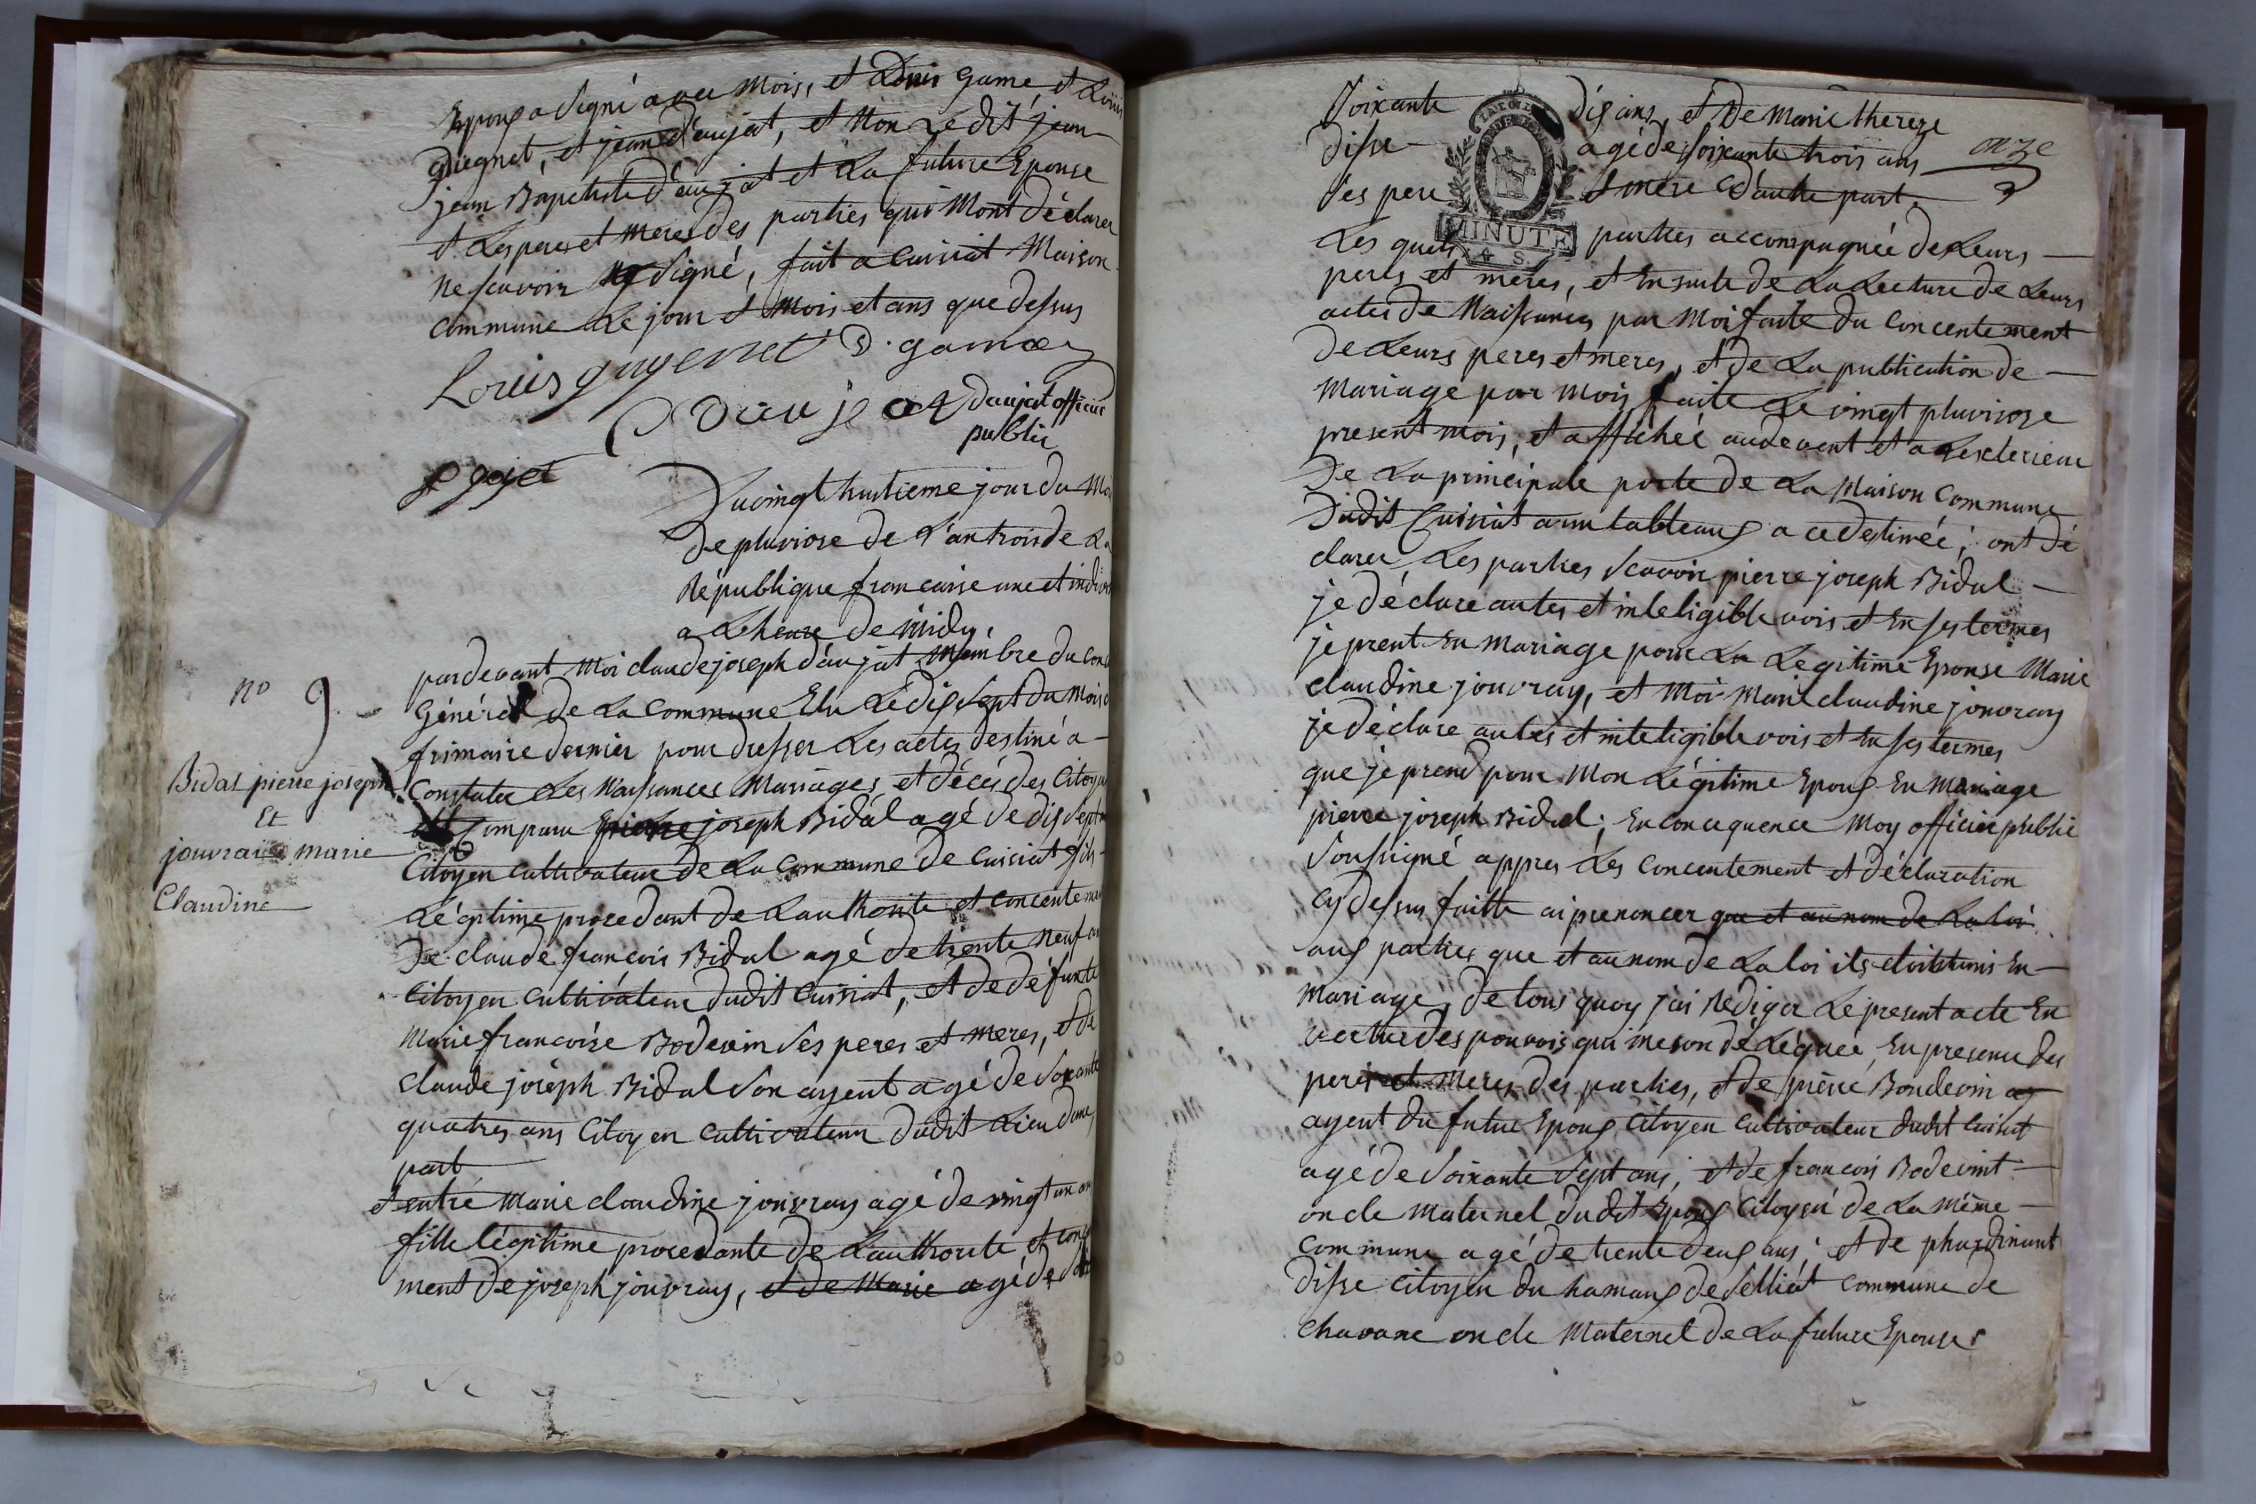 Epoux a signé avec mois, et Louis Game, et Louis
guegnet, et jean d'aujat, et Non Ledit jean
jean Bapetiste d'aujat et La future Epouse
et Les peres et meres des parties qui Mont déclarer
ne scavoir signé, fait a Cuisiat Maison
commune Le jour et Mois et ans que dessus
Louis guyenet D. gamoz
Daujat Daujat officier
public
Du vingt huitieme jour du Mois
de pluviose de L'an trois de La
République francaise une et indivi
a Leheure de Midy.
pardevant Moi claude joseph d'aujat Membre du Cons
Général de La Commune Elu Le dix sept du Mois d
frimaire dernier pour dresser Les actes destiné a
Constater Les Naissances Mariages et décés des Citoyens
comparu pierre joseph Bidal agé de dix sept
Citoyen cultivateur de La Commune de Cuisiat fils
Légitime procedant de L'authorité et concentemen
De claude francois Bidal agé de trente neuf an
Citoyen Cultivateur dudit Cuisiat, et de défunte
Marie francoise Bodevin ses peres et meres, et de
claude joséph Bidal son ayent agé de soixante
quatres ans Citoyen Cultivateur dudit Lieu dune
part
et entre Marie claudine jouvray agé de vingt un an
fille légitime procedante de L'authorité et conce
ment de joseph jouvray, et de Marie agé de
no 9.
Bidal pierre joseph
Et
jouvrai marie
Claudine
Soixante dix ans, et de Marie thereze
disse agé de soixante trois ans
ses pere et mere d'autre part.
onze
LA LOI
MINUTE
4 S.
Les quels parties accompagnée de Leurs
peres et meres, et Ensuite de La Lecture de Leurs
actes de Naissances par Moi faite du concentement
de Leurs peres et meres, et de La publication de
mariage par mois faite Le vingt pluviose
present mois, et affichéé audevent et a Lexterieur
De La principale porte de La Maison Commune
dudit Cuisiat a un tableaux a ce destinéé; ont dé
clarer Les parties scavoir pierre joseph Bidal
je déclare autes et inteligible vois et En ses termes
je prent En mariage pour La Legitime Epouse Marie
claudine jouvray, et Moi Marie claudine jouvray
je déclare autes et inteligible vois et En ses termes
que je prend pour Mon Légitime Epoux En Mariage
pierre joseph Bidal; En concequence Moy officier public
soussigné appres Les concentement et déclaration
Cydessus faitte ai prenoncer que et au nom de La loi
aux parties que et au nom de La loi ils etoit unis En
Mariage, de tous quoy j'ai Rediger Le present acte En
vertue des pouvois qui me son déléguéé, En presence des
peres et Meres des parties, et de pierre Bondevin
ayent du futur Epoux Citoyen Cultivateur dudit Cuisiat
agé de soixante sept ans, et de francois Bodevint
oncle Maternel dudit Epoux Citoyen de La même
Commune agé de trente deux ans; et de phardinant
disse Citoyen du hamaux de selliat commune de
chavane oncle Maternel de La future Epouse